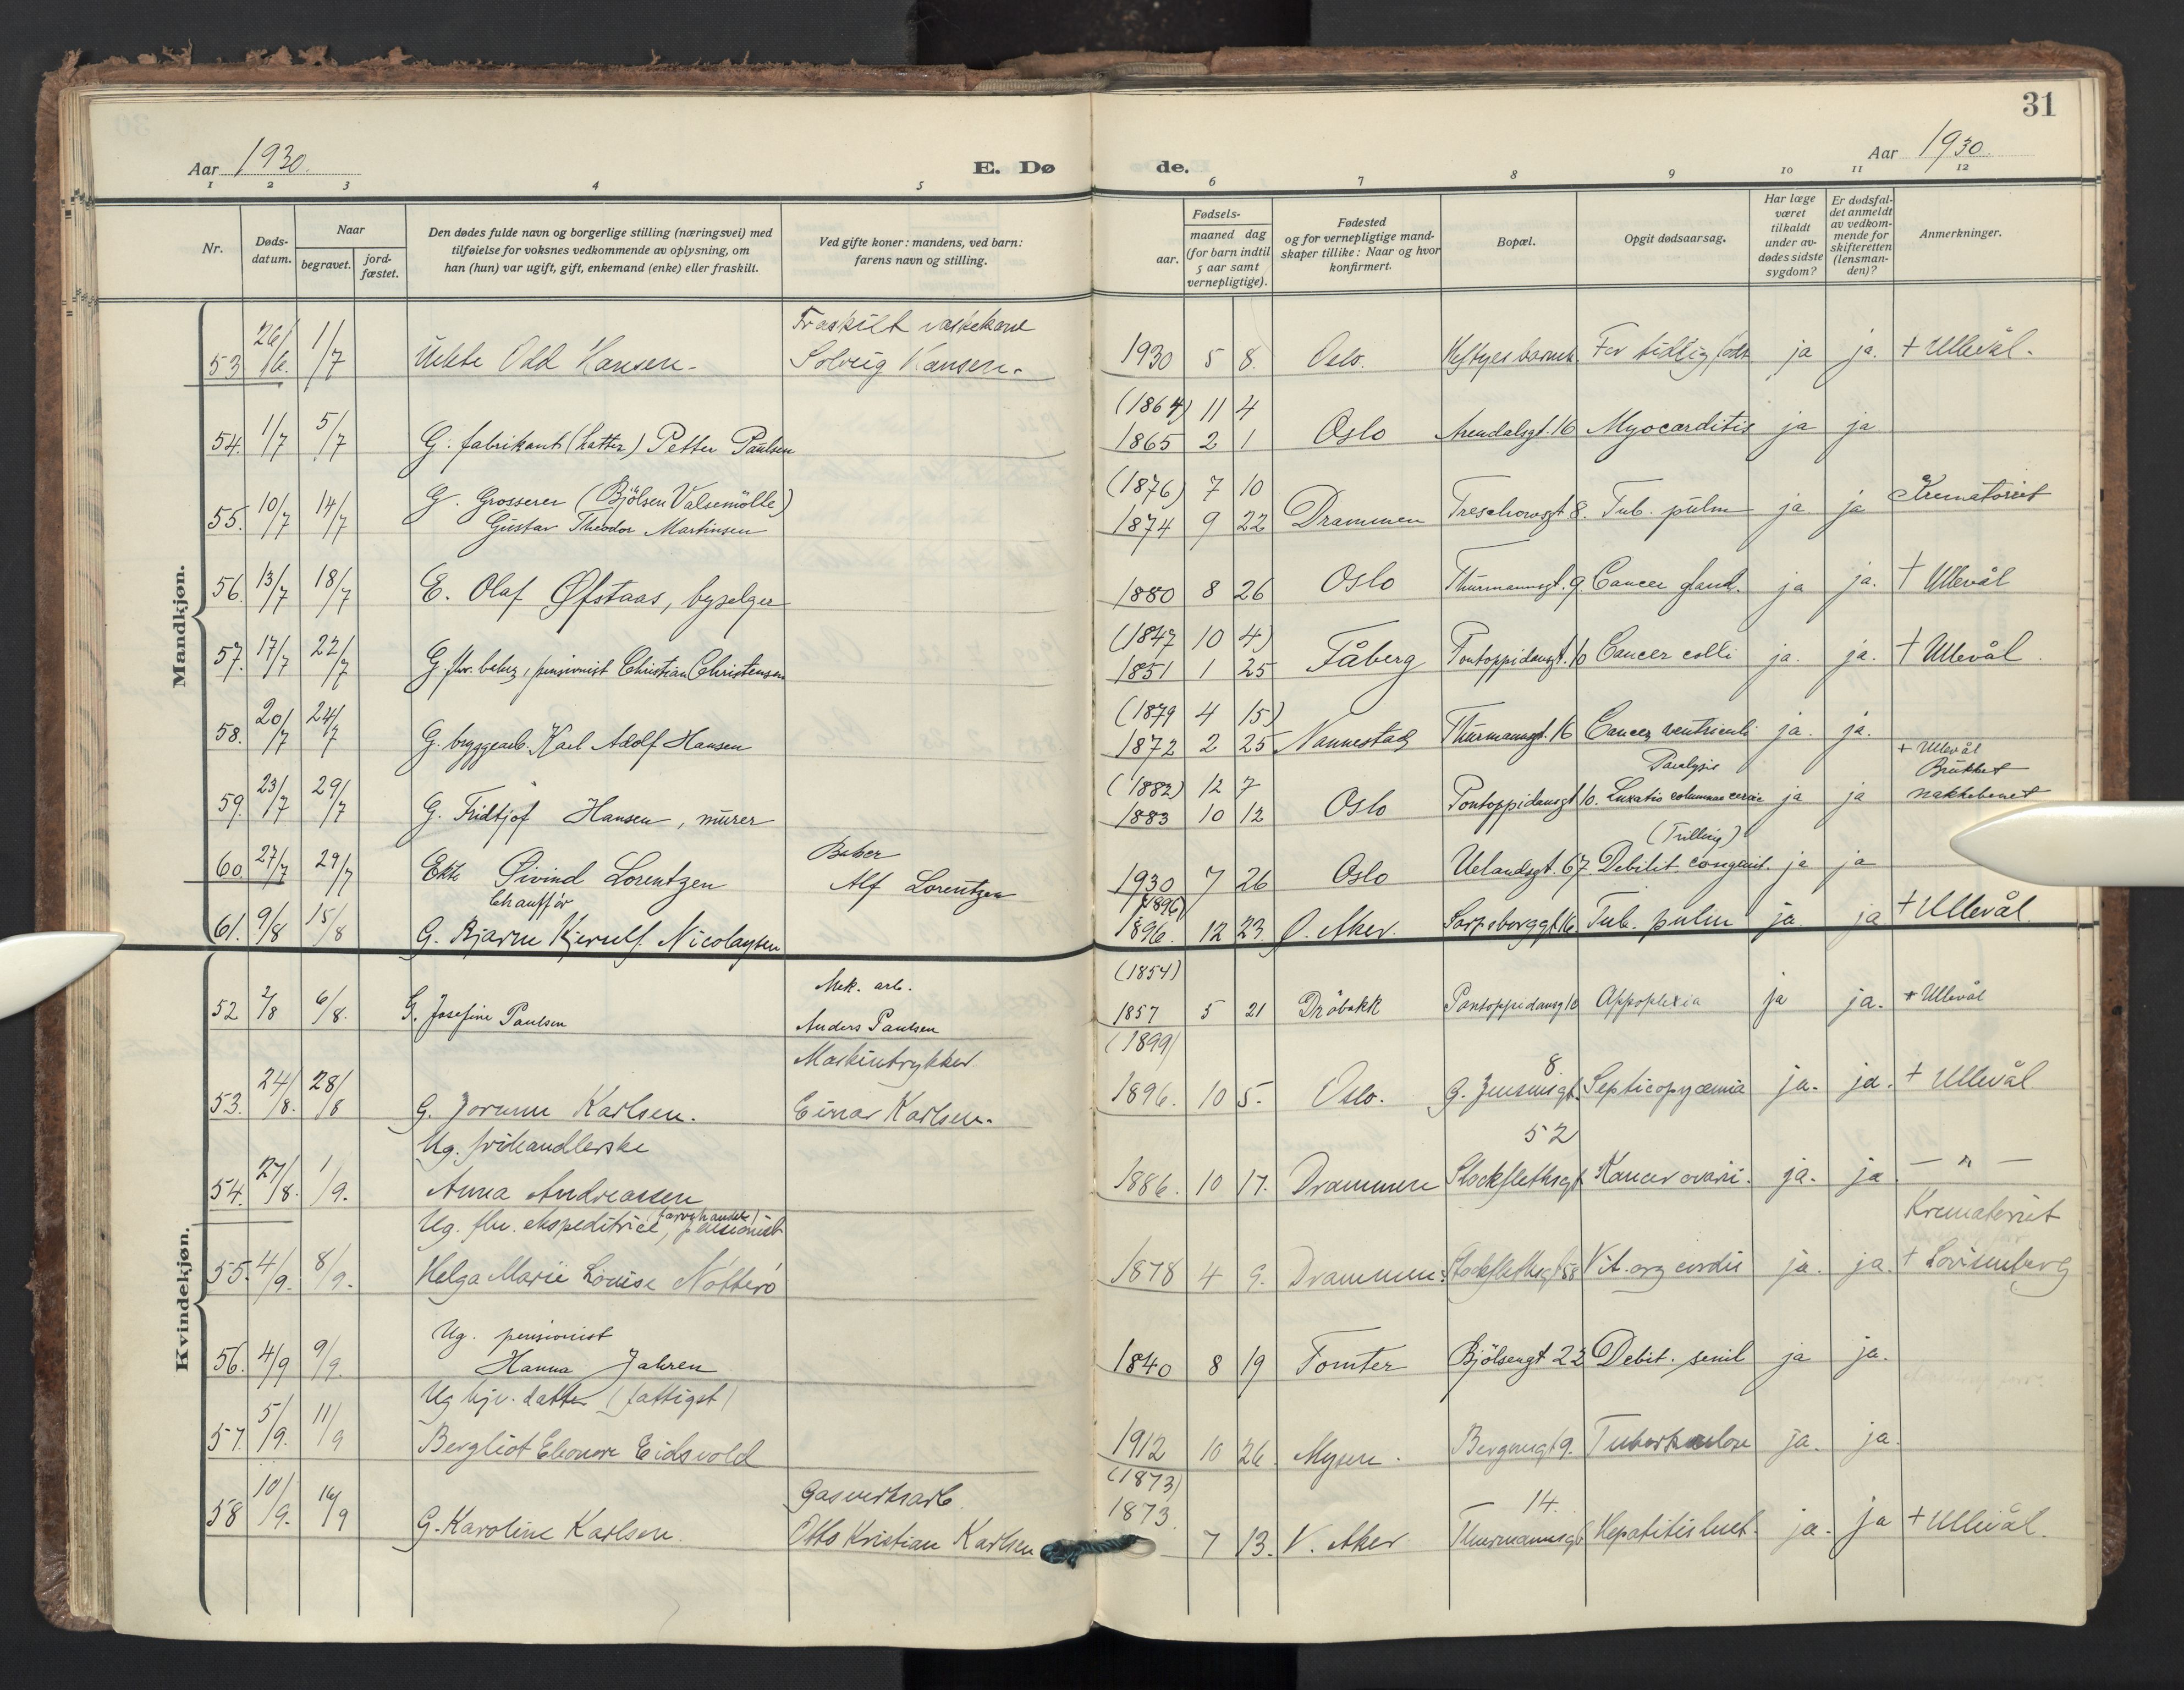 31
Aar 1930.
E. Dø
de.
Aar 1930.
1 2 3 4 5 6 7 8 9 10 11 12
Nr.
Døds-
datum.
Naar
begravet.
jord-
fæstet.
Den dødes fulde navn og borgerlige stilling (næringsvei) med
tilføielse for voksnes vedkommende av oplysning, om
han (hun) var ugift, gift, enkemand (enke) eller fraskilt.
Ved gifte koner: mandens, ved barn:
farens navn og stilling.
Fødsels-
aar.
maaned dag
(for barn indtil
5 aar samt
vernepligtige).
Fødested
og for vernepligtige mand-
skaper tillike: Naar og hvor
konfirmert.
Bopæl.
Opgit dødsaarsag.
Har læge
været
tilkaldt
under av-
dødes sidste
sygdom?
Er dødsfal-
det anmeldt
av vedkom-
mende for
skifteretten
(lensman-
den)?
Anmerkninger.
Mandkjøn.
Fraskilt vaskekone
53 26/6. 1/7 Uekte Odd Hansen. Solveig Hansen. 1930 5 8. Oslo. Heftyes barneh. For tidlig født ja ja. + Ullevål.
(1864) 11 4
54. 1/7 5/7 G. fabrikant (hatter) Petter Paulsen 1865 2 1 Oslo Arendalsgt. 16 Myocarditis ja ja
G. Grosserer (Bjölsen Valsemölle) (1876) 7 10
55. 10/7 14/7 Gustav Theodor Martinsen 1874 9 22 Drammen Treschowsgt 8. Tub. pulm ja ja Krematoriet
56. 13/7 18/7 E. Olaf Øfstaas, byselger 1880 8 26 Oslo Thurmannsgt. 9. Cancer gland. ja ja. + Ullevål
(1847 10 4)
57. 17/7 22/7 G. fhv. , pensionist Christian Christensen 1851 1 25 Fåberg Pontoppidansgt. 10 Cancer colli ja. ja. + Ullevål
(1879 4 15)
58. 20/7 24/7 G. bryggearb. Karl Adolf Hansen 1872 2 25 Nannestad Thurmannsgt. 16 Cancer ventriculi ja. ja.
(1882) 12 7 Paralysis + Ullevål
Brukket
59. 23/7 29/7 G. Fridtjof Hansen, murer 1883 10 12 Oslo Pontoppidansgt 10. Luxatio columnae cervic ja ja nakkebenet
Baker (Trilling)
60. 27/7 29/7 Ekte Øivind Lorentzen Alf Lorentzen 1930 7 26 Oslo Uelandsgt. 67 Debilit. congenit. ja ja
Chauffør (1896)
61. 9/8 15/8 G. Bjarne Kjerulf Nicolaysen 1896. 12 23. Ø. Aker. Sarpsborggt 16 Tub. pulm ja. ja + Ullevål.
Kvindekjøn.
Mek. arb. (1854)
52 2/8 6/8. G. Josefine Paulsen Anders Paulsen 1857 5 21 Dröbakk Pontoppidansg 10 Appoplexia ja ja. + Ullevål
Maskintrykker (1899) 8.
53. 24/8. 28/8 G. Jorunn Karlsen. Einar Karlsen. 1896. 10 5. Oslo. G. Jensensgt. Septicopyæmie ja. ja. + Ullevål
Ug. frihandlerske 52
54. 27/8. 1/9. Anna Andreassen 1886. 10 17. Drammen Stockflethsgt Kancer ovarii. ja. ja — " —
Ug. fhv. ekspeditrice (farvehandel), pensionist Krematoriet
55. 4/9. 8/9. Helga Marie Louise Nötterö 1878 4 9. Drammen. Stockflethsgt 58 Vit. org cordis ja. ja. + Lovisenberg
Ug. pensionist
56. 4/9 9/9. Hanna Jahren 1840 8 19 Tomter Bjölsengt 22 Debit. senil ja ja.
Ug hjv. datter (fattigst)
57. 5/9. 11/9 Bergliot Eleonore Eidsvold 1912 10 26. Mysen. Bergensgt 9. Tuberkulose ja. ja.
Gasverksarb. (1873) 14.
58 10/9. 16/9 G. Karoline Karlsen. Otto Kristian Karlsen 1873. 7 13. V. Aker Thurmannsgt Hepatitis luet. ja. ja + Ullevål.